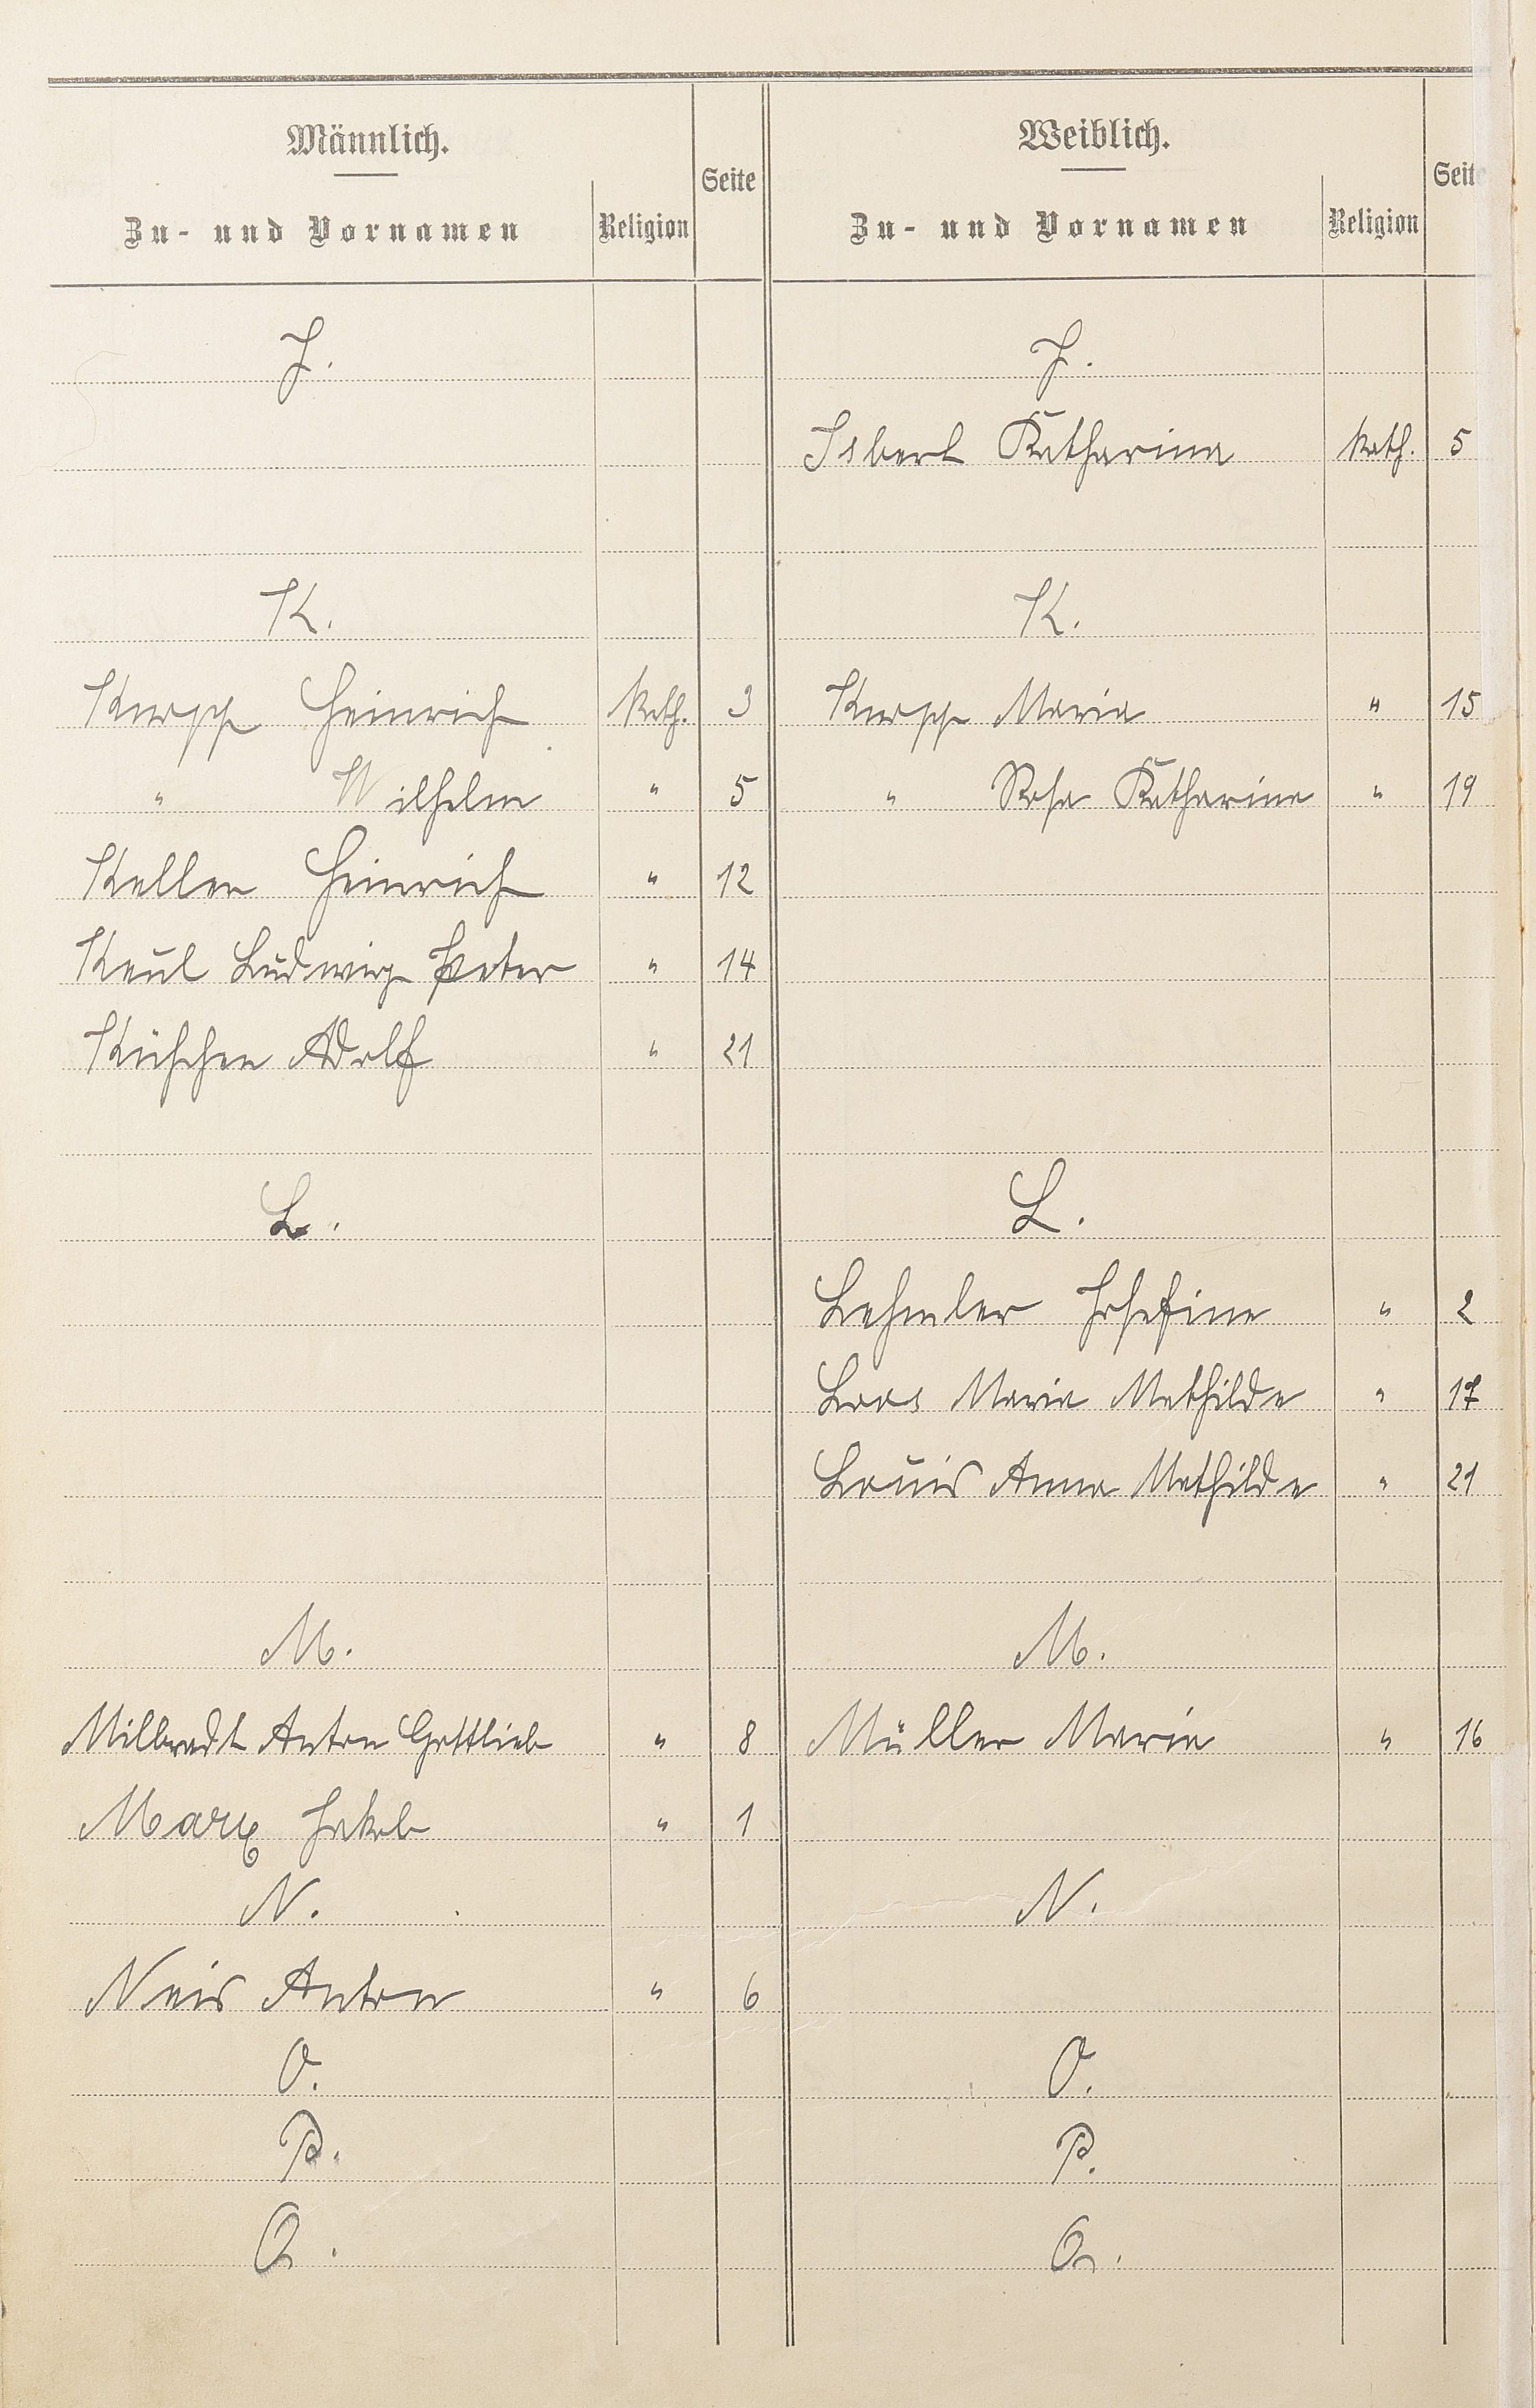 Männlich.
Zu- und Vornamen Religion Seite
J.
K.
Knopp Heinrich Kath. 3
" Wilhelm " 5
Keller Heinrich " 12
Keul Ludwig Peter " 14
Adolf " 21
L.
M.
Milbradt Anton Gottlieb " 8
Marx Jakob " 1
N.
Neis Anton " 6
O.
P.
Q.
Weiblich.
Zu- und Vornamen Religion Seite
J.
Isbert Katharina Kath. 5
K.
Knopp Maria " 15
" Rosa Katharina " 19
L.
Lehmler Josefine " 2
Loos Maria Mathilde " 17
Louis Anna Mathilde " 21
M.
Müller Maria " 16
N.
O.
P.
Q.